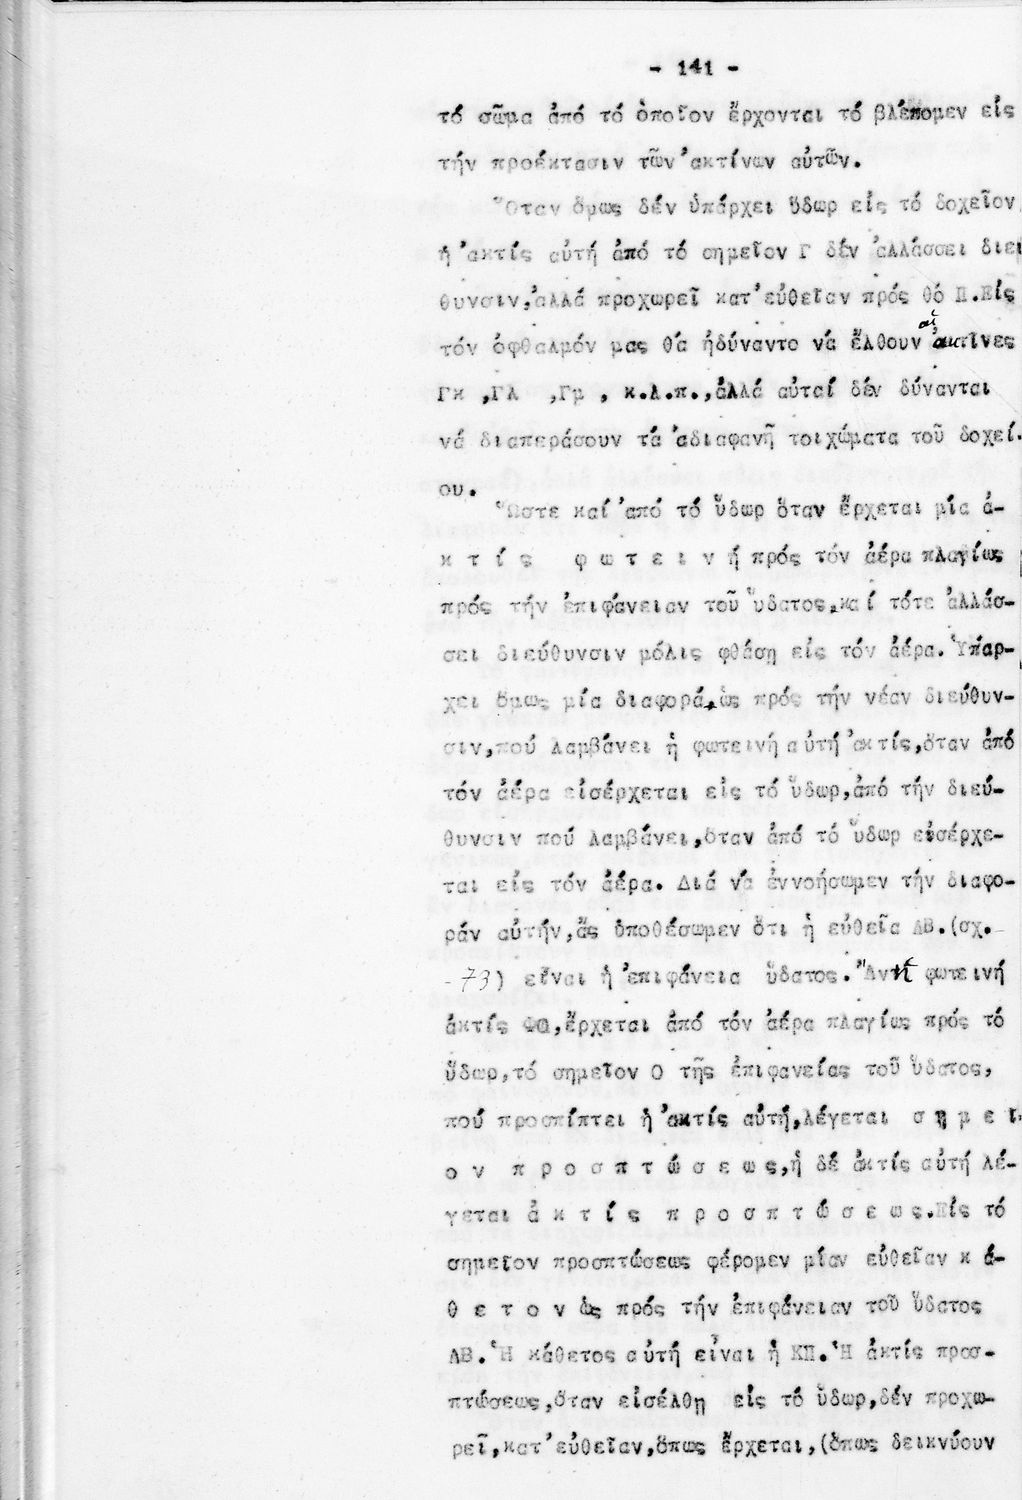 - 141 -
τό σῶμα ἀπό τό ὁποῖον ἔρχονται τό βλέπομεν εἰς
τήν προέκτασιν τῶν ἀκτίνων αὐτῶν.
Ὅταν ὅμως δέν ὑπάρχει ὕδωρ εἰς τό δοχεῖον,
ἡ ἀκτίς αὐτή ἀπό τό σημεῖον Γ δέν ἀλλάσσει διεύ
θυνσιν, ἀλλά προχωρεῖ κατ'εὐθεῖαν πρός θό Π.Εἰς
τόν ὀφθαλμόν μας θά ἠδύναντο νά ἔλθουν αἱ ἀκτῖνες
Γκ ,Γλ ,Γμ , κ.λ.π.,ἀλλά αὐταί δέν δύνανται
νά διαπεράσουν τά ἀδιαφανῆ τοιχώματα τοῦ δοχεί-
ου.
Ὥστε καί ἀπό τό ὕδωρ ὅταν ἔρχεται μία ἀ-
κ τ ί ς φ ω τ ε ι ν ή πρός τόν ἀέρα πλαγίως
πρός τήν ἐπιφάνειαν τοῦ ὕδατος,καί τότε ἀλλάσ-
σει διεύθυνσιν μόλις φθάση εἰς τόν ἀέρα. Ὑπάρ-
χει ὅμως μία διαφορά,ὡς πρός τήν νέαν διεύθυν-
σιν,πού λαμβάνει ἡ φωτεινή αὐτή ἀκτίς,ὅταν ἀπό
τόν ἀέρα εἰσέρχεται εἰς τό ὕδωρ,ἀπό τήν διεύ-
θυνσιν πού λαμβάνει,ὅταν ἀπό τό ὕδωρ εἰσέρχε-
ται εἰς τόν ἀέρα. Διά νά ἐννοήσωμεν τήν διαφο-
ράν αὐτήν,ἄς ὑποθέσωμεν ὅτι ἡ εὐθεῖα ΑΒ.(σχ.
73) εἶναι ἡ ἐπιφάνεια ὕδατος. Ἄν ἡ φωτεινή
ἀκτίς ΦΟ,ἔρχεται ἀπό τόν ἀέρα πλαγίως πρός τό
ὕδωρ,τό σημεῖον Ο τῆς ἐπιφανείας τοῦ ὕδατος,
πού προσπίπτει ἡ ἀκτίς αὐτή,λέγεται σ η μ ε ῖ-
ο ν π ρ ο σ π τ ώ σ ε ω ς,ἡ δέ ἀκτίς αὐτή λέ-
γεται ἀ κ τ ί ς π ρ ο σ π τ ώ σ ε ω ς.Εἰς τό
σημεῖον προσπτώσεως φέρομεν μίαν εὐθεῖαν κ ά-
θ ε τ ο ν ὡς πρός τήν ἐπιφάνειαν τοῦ ὕδατος
ΑΒ. Ἡ κάθετος αὐτή εἶναι ἡ ΚΠ. Ἡ ἀκτίς προσ-
πτώσεως,ὅταν εἰσέλθη εἰς τό ὕδωρ,δέν προχω-
ρεῖ,κατ'εὐθεῖαν,ὅπως ἔρχεται,(ὅπως δεικνύουν